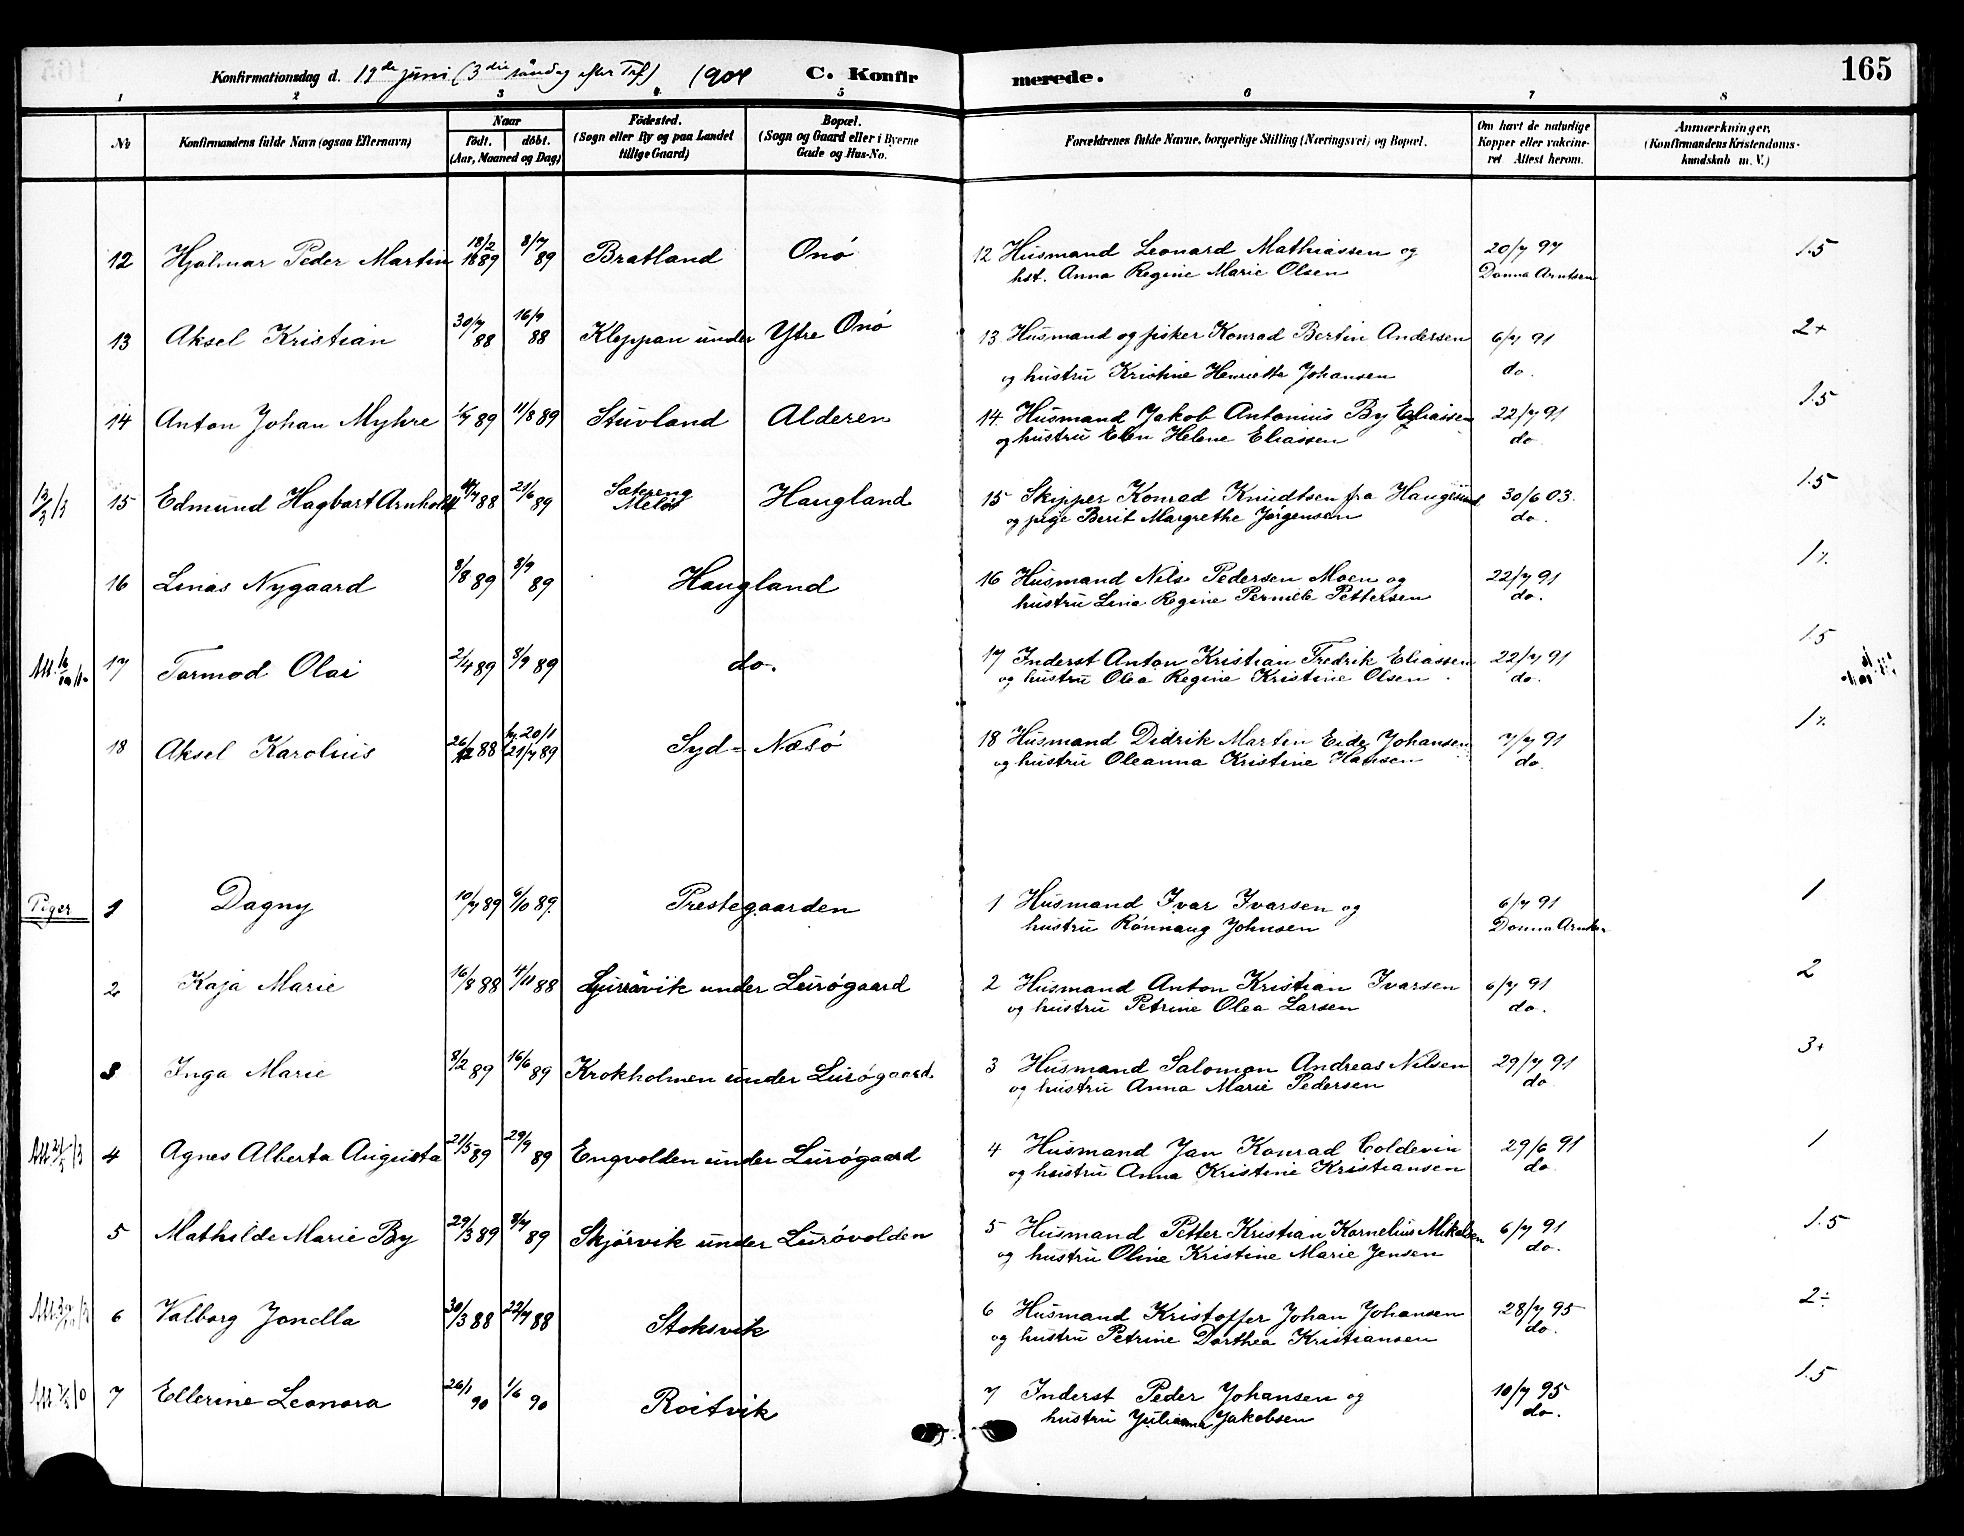 Konfirmationsdag d. 19de juni (3die söndag efter Tref) 1904 C. Konfirmerede. 165
1 2 3 4 5 6 7 8
No
Konfirmandens fulde Navn (ogsaa Efternavn)
Naar
födt. döbt.
(Aar, Maaned og Dag)
Födested.
(Sogn eller By og paa Landet
tillige Gaard)
Bopæl.
(Sogn og Gaard eller i Byerne
Gade og Hus-No.
Forældrenes fulde Navne, borgerlige Stilling (Næringsvei) og Bopæl.
Om havt de naturlige
Kopper eller vakcineret
Attest herom.
Anmærkninger,
(Konfirmandens Kristendomskundskab
m. V.)
12 Hjalmar Peder Martin 18/2 1889 8/7 89 Bratland Onö 12 Husmand Leonard Mathiassen og 20/7 97 1.5
hst. Anna Regine Marie Olsen Donna Arntsen
13 Aksel Kristian 30/7 88 16/9 88 Kleppan under Ytre Onö 13 Husmand og fisker Konrad Bertin Andersen 6/7 91 2+
og hustru Kristine Henrietta Johansen do.
14 Anton Johan Myhre 1/7 89 11/8 89 Stuvland Alderen 14. Husmand Jakob Antonius By Eliassen 22/7 91 1.5
og hustru Elen Helene Eliassen do.
15 Edmund Hagbart Arnholdt 88 21/6 89 Sætereng Melöi Haugland 15 Skipper Konrad Knudtsen fra Haugesund 30/6 03. 1.5
og pige Berit Margrethe Jörgensen do.
16 Linas Nygaard 8/8 89 8/9 89 Haugland 16 Husmand Nils Pedersen Moen og 22/7 91
hustru Lina Regine Pernille Pettersen do.
17 Tormod Olai 2/4 89 8/9 89 do. 17 Inderst Anton Kristian Fredrik Eliassen 22/7 91 1.5
og hustru Olea Regine Kristine Olsen do.
18 Aksel Karolius 26/12 88 hj. 20/1 21/7 89 Syd-Næsö 18 Husmand Didrik Martin Eide Johansen 7/7 91
og hustru Oleanna Kristine Hansen do.
Piger
1 Dagny 10/7 89 6/10 89. Prestegaarden 1 Husmand Ivar Ivarsen og 6/7 91 1
hustru Rönnaug Johnsen Donna Arntsen
2 Kaja Marie 16/8 88 4/11 88 Lurövik under Lurögaard 2 Husmand Anton Kristian Ivarsen 6/7 91 2
og hustru Petrine Olea Larsen do.
3 Inga Marie 8/2 89 16/6 89 Krokholmen under Lurögaard. 3 Husmand Salomon Andreas Nilsen 29/7 91 3+
og hustru Anna Marie Pedersen do
4 Agnes Alberta Augusta 21/5 89 29/9 89 Engvolden under Lurögaard 4 Husmand Jan Konrad Coldevin 29/6 91 1
og hustru Anna Kristine Kristiansen do
5 Mathilde Marie By 29/3 89 8/7 89 Skjörvik under Lurövolden 5 Husmand Petter Kristian Kornelius Mikalsen 6/7 91 1.5
og hustru Oline Kristine Marie Jensen do.
6 Valborg Jonella 30/3 88 22/7 88 Stoksvik 6 Husmand Kristoffer Johan Johansen 28/7 95 2÷
og hustru Petrine Dorthea Kristiansen do.
7 Ellerine Leonora 26/1 90 1/6 90 Roitvik 7 Inderst Peder Johansen og 10/7 95 1.5
hustru Julianna Jakobsen do.